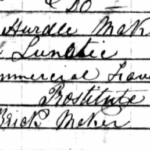 Do
Hurdle Mak
Lunatic
mmercial Trav
Prostitute
Brick Maker